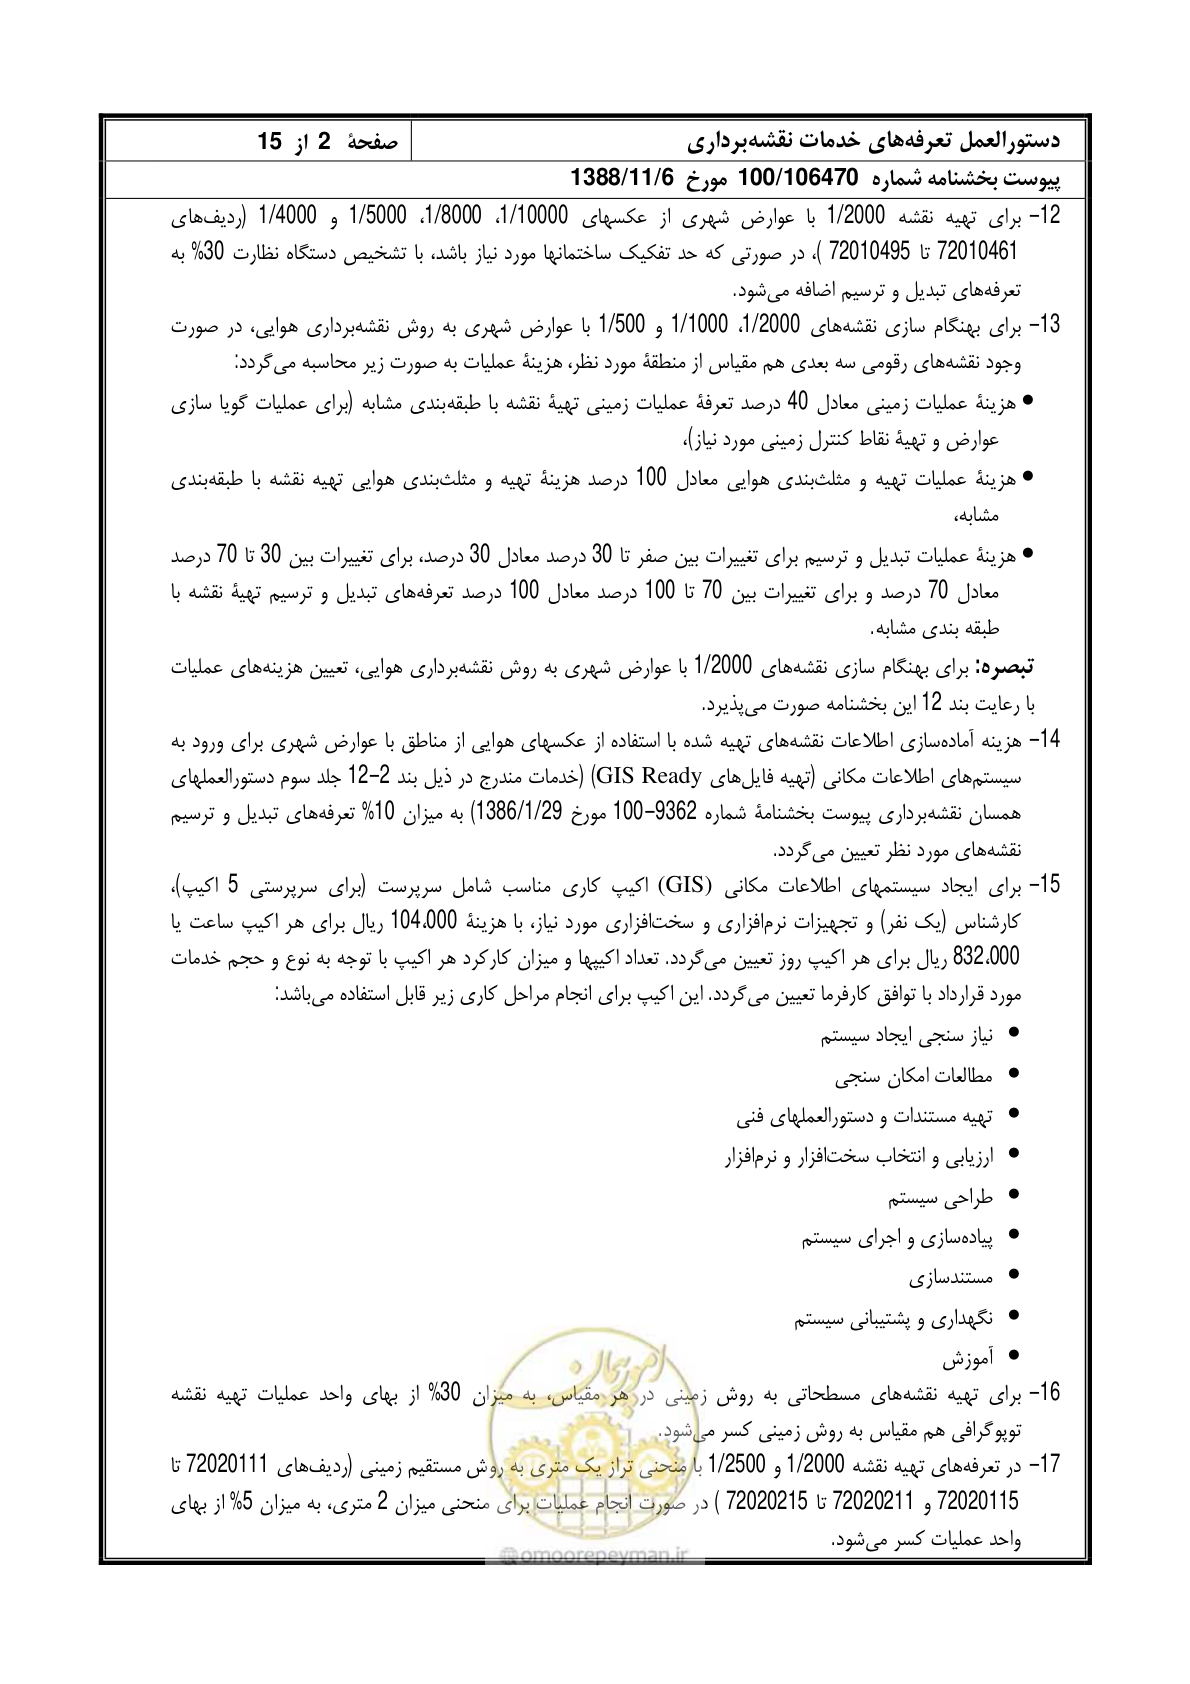 دستورالعمل تعرفه‌های خدمات نقشه‌برداری
صفحۀ 2 از 15
پیوست بخشنامه شماره 100/106470 مورخ 1388/11/6
12- برای تهیه نقشه 1/2000 با عوارض شهری از عکسهای 1/10000، 1/8000، 1/5000 و 1/4000 (ردیف‌های
72010461 تا 72010495 )، در صورتی که حد تفکیک ساختمانها مورد نیاز باشد، با تشخیص دستگاه نظارت 30% به
تعرفه‌های تبدیل و ترسیم اضافه می‌شود.
13- برای بهنگام سازی نقشه‌های 1/2000، 1/1000 و 1/500 با عوارض شهری به روش نقشه‌برداری هوایی، در صورت
وجود نقشه‌های رقومی سه بعدی هم مقیاس از منطقۀ مورد نظر، هزینۀ عملیات به صورت زیر محاسبه می‌گردد:
● هزینۀ عملیات زمینی معادل 40 درصد تعرفۀ عملیات زمینی تهیۀ نقشه با طبقه‌بندی مشابه (برای عملیات گویا سازی
عوارض و تهیۀ نقاط کنترل زمینی مورد نیاز)،
● هزینۀ عملیات تهیه و مثلث‌بندی هوایی معادل 100 درصد هزینۀ تهیه و مثلث‌بندی هوایی تهیه نقشه با طبقه‌بندی
مشابه،
● هزینۀ عملیات تبدیل و ترسیم برای تغییرات بین صفر تا 30 درصد معادل 30 درصد، برای تغییرات بین 30 تا 70 درصد
معادل 70 درصد و برای تغییرات بین 70 تا 100 درصد معادل 100 درصد تعرفه‌های تبدیل و ترسیم تهیۀ نقشه با
طبقه بندی مشابه.
تبصره: برای بهنگام سازی نقشه‌های 1/2000 با عوارض شهری به روش نقشه‌برداری هوایی، تعیین هزینه‌های عملیات
با رعایت بند 12 این بخشنامه صورت می‌پذیرد.
14- هزینه آماده‌سازی اطلاعات نقشه‌های تهیه شده با استفاده از عکسهای هوایی از مناطق با عوارض شهری برای ورود به
سیستم‌های اطلاعات مکانی (تهیه فایل‌های GIS Ready) (خدمات مندرج در ذیل بند 2-12 جلد سوم دستورالعملهای
همسان نقشه‌برداری پیوست بخشنامۀ شماره 9362-100 مورخ 1386/1/29) به میزان 10% تعرفه‌های تبدیل و ترسیم
نقشه‌های مورد نظر تعیین می‌گردد.
15- برای ایجاد سیستمهای اطلاعات مکانی (GIS) اکیپ کاری مناسب شامل سرپرست (برای سرپرستی 5 اکیپ)،
کارشناس (یک نفر) و تجهیزات نرم‌افزاری و سخت‌افزاری مورد نیاز، با هزینۀ 104،000 ریال برای هر اکیپ ساعت یا
832،000 ریال برای هر اکیپ روز تعیین می‌گردد. تعداد اکیپها و میزان کارکرد هر اکیپ با توجه به نوع و حجم خدمات
مورد قرارداد با توافق کارفرما تعیین می‌گردد. این اکیپ برای انجام مراحل کاری زیر قابل استفاده می‌باشد:
● نیاز سنجی ایجاد سیستم
● مطالعات امکان سنجی
● تهیه مستندات و دستورالعملهای فنی
● ارزیابی و انتخاب سخت‌افزار و نرم‌افزار
● طراحی سیستم
● پیاده‌سازی و اجرای سیستم
● مستندسازی
● نگهداری و پشتیبانی سیستم
● آموزش
16- برای تهیه نقشه‌های مسطحاتی به روش زمینی در هر مقیاس، به میزان 30% از بهای واحد عملیات تهیه نقشه
توپوگرافی هم مقیاس به روش زمینی کسر می‌شود.
17- در تعرفه‌های تهیه نقشه 1/2000 و 1/2500 با منحنی تراز یک متری به روش مستقیم زمینی (ردیف‌های 72020111 تا
72020115 و 72020211 تا 72020215 ) در صورت انجام عملیات برای منحنی میزان 2 متری، به میزان 5% از بهای
واحد عملیات کسر می‌شود.
امور پیمان
@omoorepeyman.ir